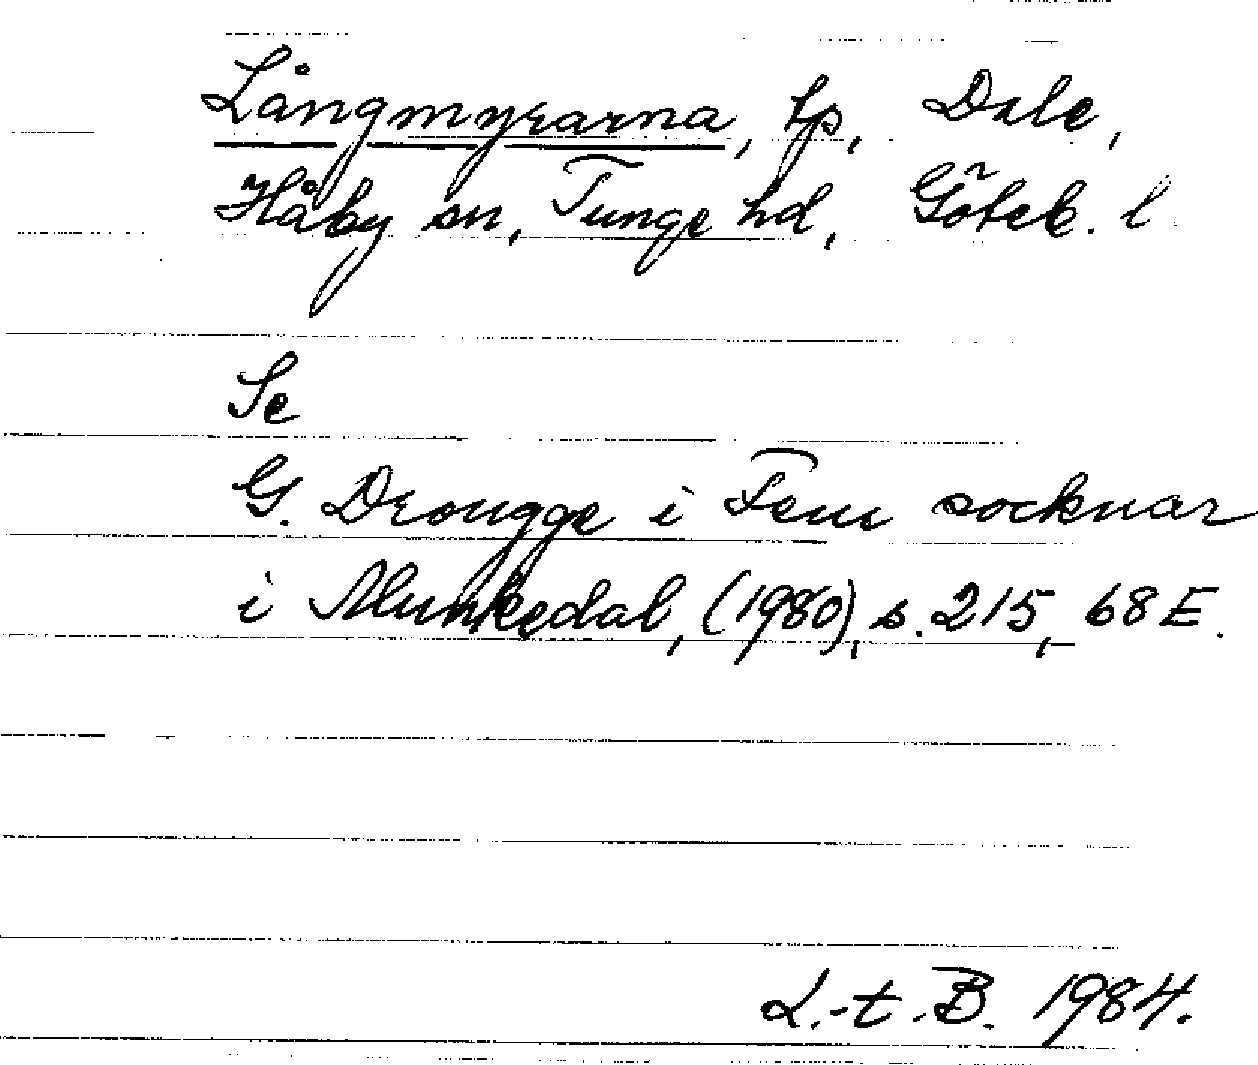 Långmyrarna, tp, Dale,
Håby sn, Tunge hd, Göteb. l
Se
G. Drougge i Fem socknar
i Munkedal, (1980), s. 215, 68 E.
L.-t. B. 1984.